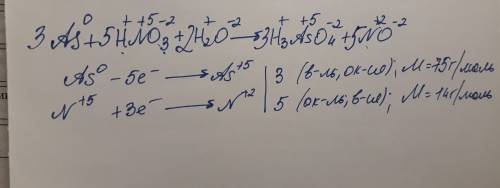 3As⁰ + 5H⁺N⁺⁵O₃⁻² + 2H₂⁺O⁻² → 3H₃⁺As⁺⁵O₄⁻² + 5N⁺²O⁻²
As⁰ - 5e⁻ → As⁺⁵ | 3 (в-ль, ок-ие); M=75г/моль
N⁺⁵ + 3e⁻ → N⁺² | 5 (ок-ль, в-ие); M=14г/моль